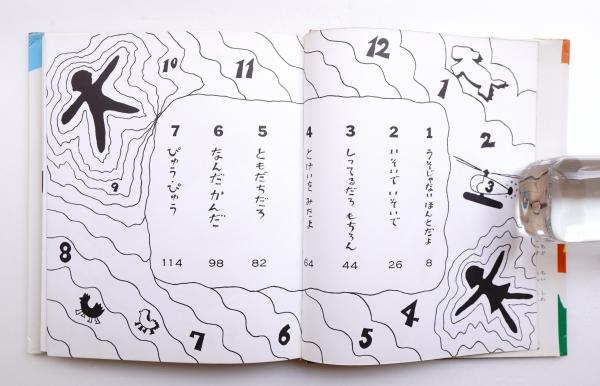 1 うそじゃない ほんとだよ 8
2 いそいで いそいで 26
3 しってるだろ もちろん 44
4 とけいを みたよ 64
5 ともだちだろ 82
6 なんだ かんだ 98
7 ぴゅう・ぴゅう 114
12
1
2
3
4
5
6
7
8
9
10
11